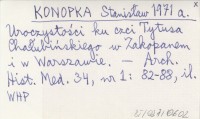 KONOPKA Stanisław 1971 a.
Uroczystości ku czci Tytusa
Chałubińskiego w Zakopanem
i w Warszawie. — Arch.
Hist. Med. 34, nr 1: 82-88, il.
WHP